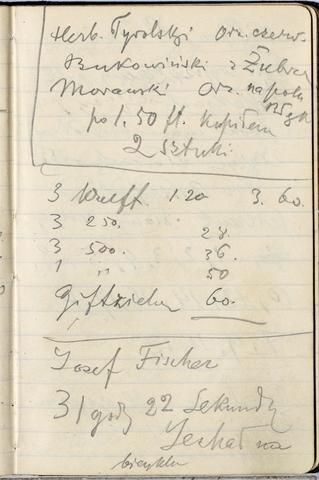 Herb. Tyrolski Orz. czerw.
Bukowiński z Żubrem
Morawski Orz. na polu
po 1. 50 ft. kupiłem
2 sztuki.
3 Kuff. 1.20 3. 60.
3 250. 28.
3 500. 36.
1 " 50
60.
Josef Fischer
31 godz 22 Sekundy
Jechał na
bicyklu